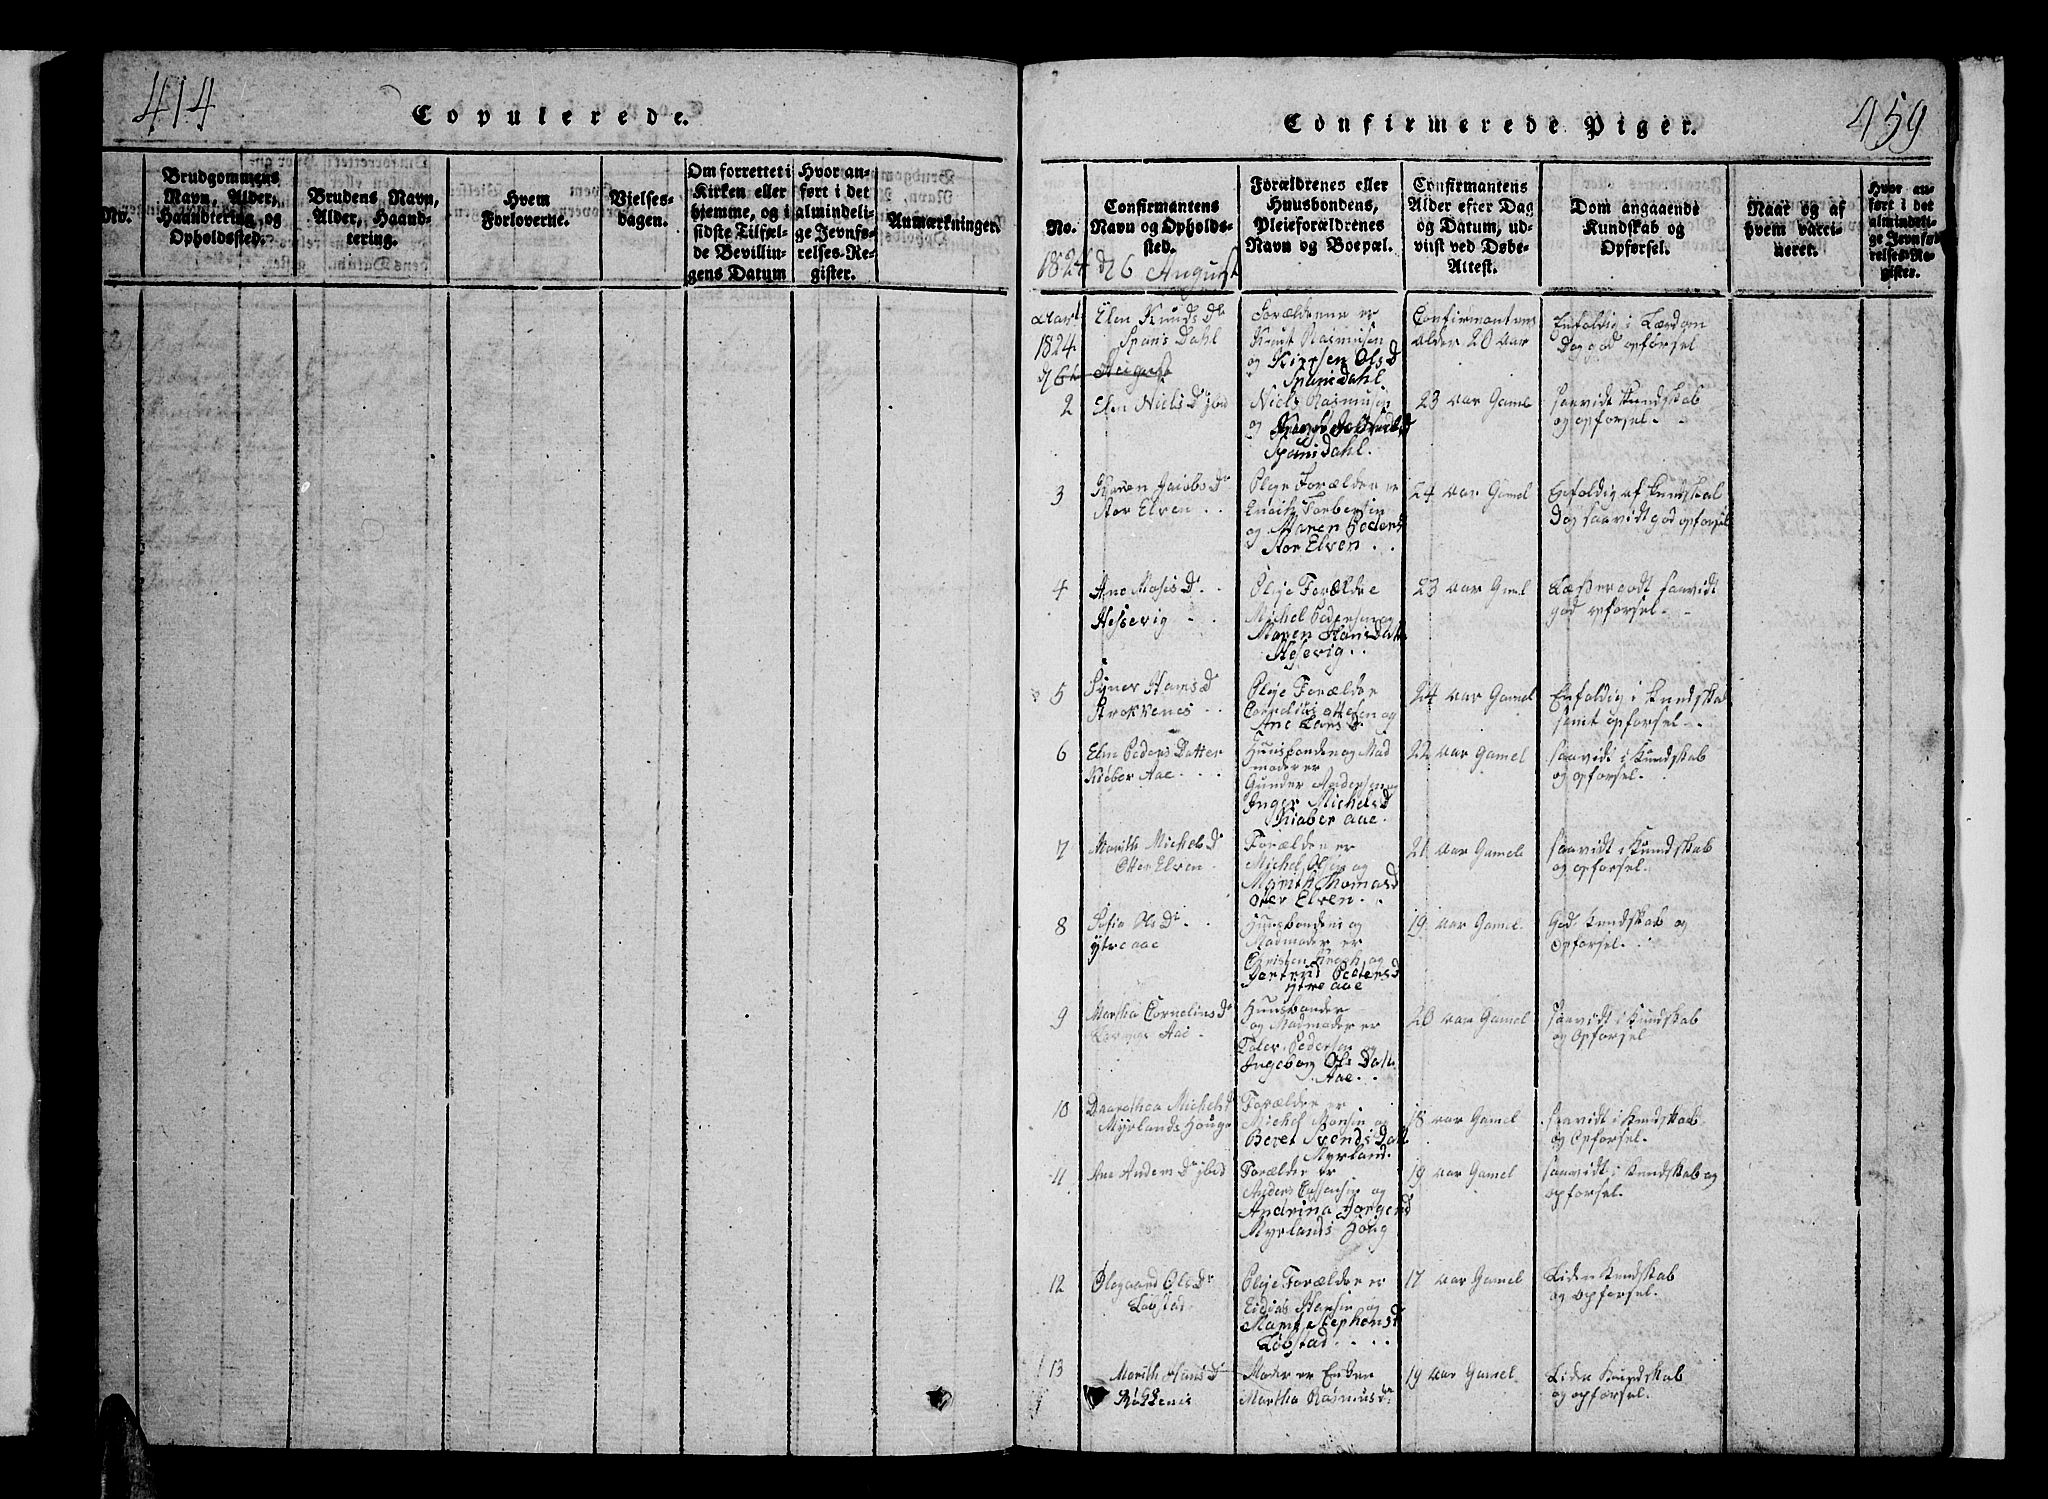 414
Copulerede.
No.
Brudgommens
Navn, Alder,
Haandtering og
Opholdssted.
Brudens Navn,
Alder, Haand-
tering.
Hvem
Forloverne.
Vielses-
dagen.
Om forrettet i
Kirken eller
hjemme, og i
sidste Tilfæl-
de Bevillin-
gens Datum
Hvor an-
ført i det
almindeli-
ge Jevnfø-
relses-Re-
gister.
Anmærkninger.
Confirmerede Piger.
459
No.
Confirmantens
Navn og Opholds-
sted.
Forældrenes eller
Huusbondens,
Pleieforældrenes
Navn og Boepæl.
Confirmantens
Alder efter Dag
og Datum, ud-
viist ved Døbe-
Attest.
Dom angaaende
Kundskab og
Opførsel.
Naar og af
hvem vacci-
neret.
Hvor an-
ført i det
almindeli-
ge Jevnfø-
relses-Re-
gister.
1824 d 6 August
Aar
1824
d 6 August
Elen Knuds Dr
Spans Dahl
Forældrene er
Knut Rasmusen
og Kirsten Ols D
Spansdahl.
Confirmantens
alder 20 Aar
Enfoldig i Lærdom
Dog god opførsel
2
Elen Niels Dr ibid
Niels Rasmusen
og
Spansdahl.
23 Aar Gamel
saavidt kundskab
og opførsel.
3
Karen Jacobs Dr
Stor Elven
Pleje Forældre er
og Maren Peders D
Stor Elven
24 Aar Gamel
Enfoldig af kundskab
Dog saavidt god opførsel
4
Ane Moses Dr
Hessevig
Pleje Forældre
Michel Pedersen og
Maren Hans Datt
Hessevig
23 Aar Gamel
god opførsel.
5
Hans Dr
Strokkenes
Pleje Forældre
Cornelius og
Ane Lars Dr
24 Aar Gamel
Enfoldig i kundskab
samt opførsel
6
Elen Peders Datter
Kiøber Aae
Huusbonden og Mad
moder er
Gunder Andersen og
Inger Michels D
Kiøber aae.
22 Aar Gamel
saavidt i Kundskab
og opførsel.
7
Marith Michels D
Otter Elven
Forældre er
Michel Olsen og
Marith Thomas D
Oter Elven
21 Aar Gamel
saavidt i Kundskab
og opførsel.
8
Sofia Ols Dr
ytre aae
Huusbonden og
Madmoder er
Christen Krogh og
Peders D
ytre aae
19 Aar Gamel
God Kundskab og
Opførsel.
9
Martha Cornelius Dr
Aae
Huusbonder
og Madmoder er
Peter Pedersen og
Ingeborg Ols Datt
Aae
20 Aar Gamel
saavidt i Kundskab
og Opførsel
10
Daarothea Michels D
Myrlands Houge
Forældre er
Michel Monsen og
Beret Svends Datt
Myrland.
18 Aar Gamel
saavidt i Kundskab
og Opførsel.
11
Ane Anders Dr ibid
Forældre er
Anders og
Andrina Jørgens D
Myrlands Houg
19 Aar Gamel
saavidt i Kundskab og
opførsel.
12
Olegaard Ols Dr
Løbstad
Pleje Forældre er
Hansen og
Stephens D
Løbstad
17 Aar Gamel
Liden Kundskab
og opførsel.
13
Marith Hans D
Røkkenes
Moder er Enken
Martha Rasmus Dr
19 Aar Gamel
Liden Kundskab
og opførsel.